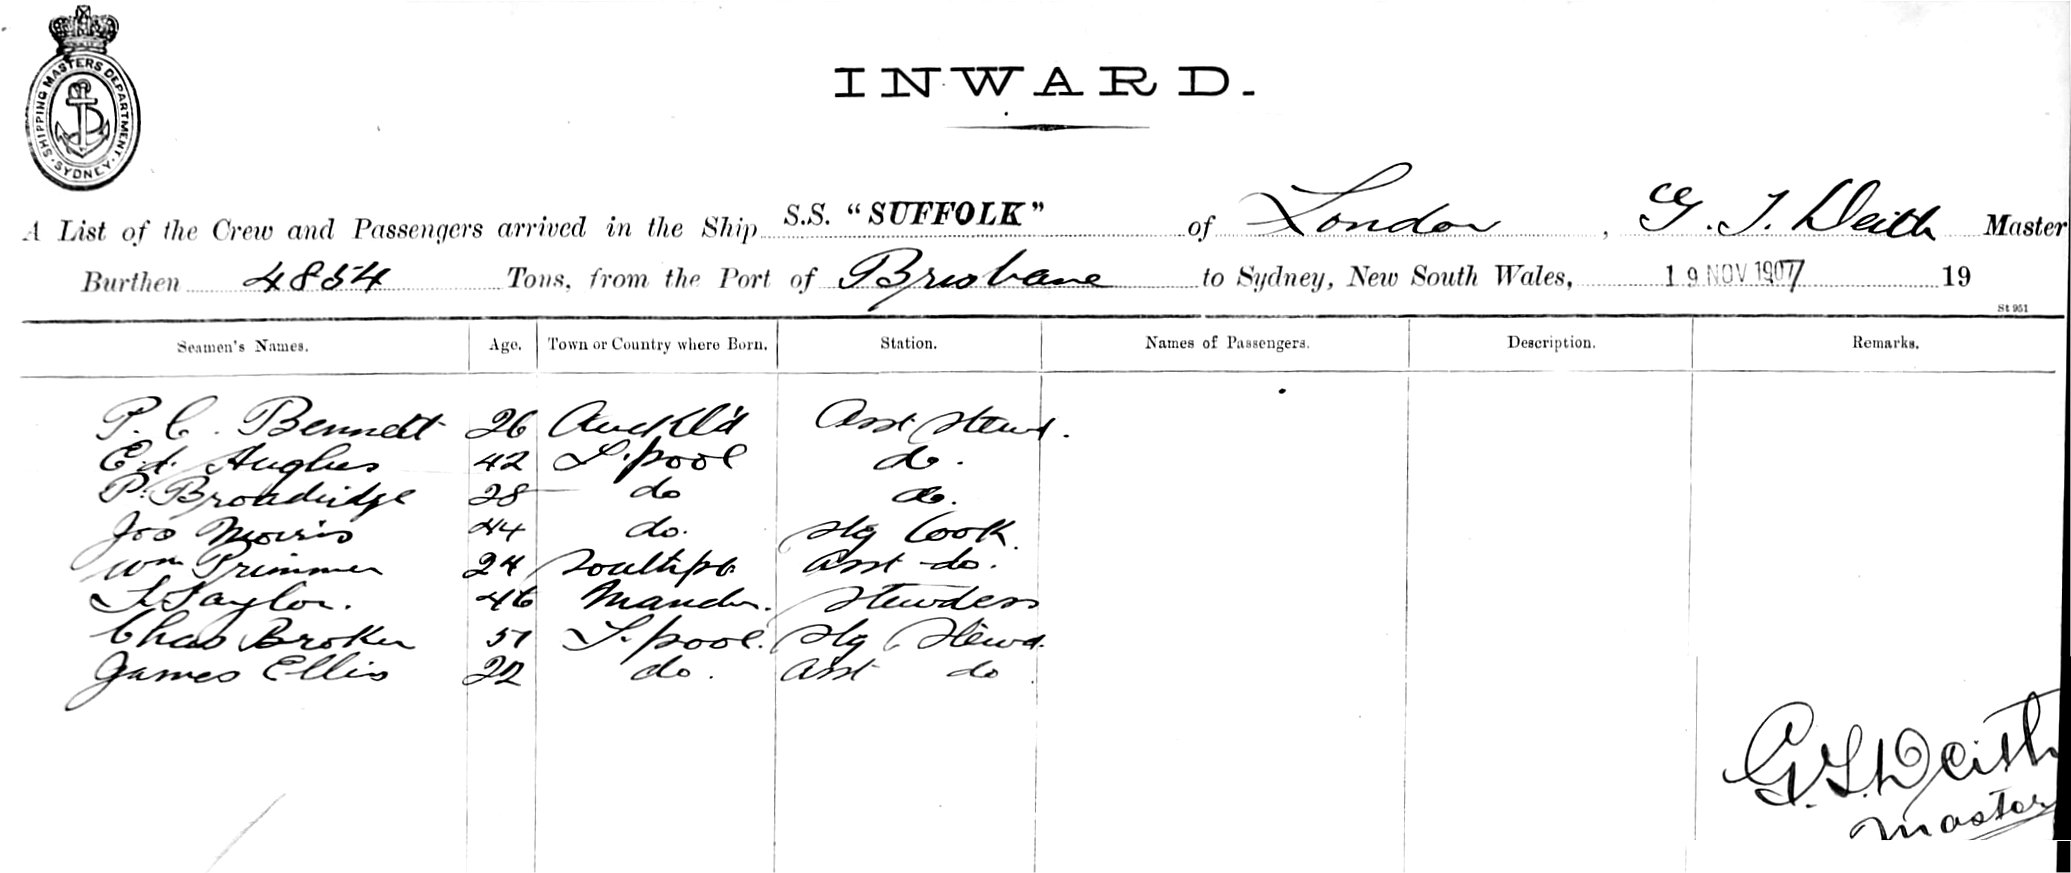 SHIPPING MASTERS DEPARTMENT. SYDNEY.
INWARD.
A List of the Crew and Passengers arrived in the Ship S.S. "SUFFOLK" of London, G. J. Deith Master
Burthen 4854 Tons, from the Port of Brisbane to Sydney, New South Wales, 19 NOV 1907 19
St 951
Seamen's Names. Age. Town or Country where Born. Station. Names of Passengers. Description. Remarks.
P. C. Bennett 26 Auckl'd Asst Stewd.
Ed. Hughes 42 L'pool do.
P. Broadridge 28 do do.
Jos Morris 44 do. Stg Cook.
Wm Primmer 24 Southpt Asst do.
Taylor. 46 Manchr. Stewdess
Chas Broker 51 L'pool. Stg Stewd.
James Ellis 22 do. Asst do
G. S. Deith
Master